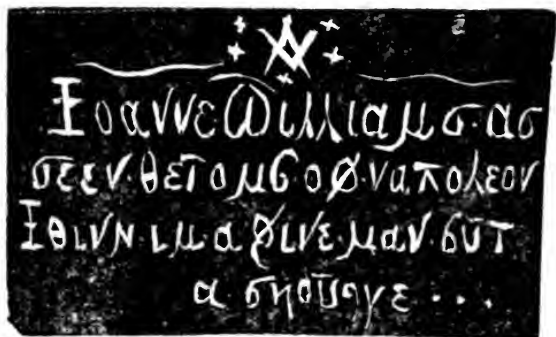 Ιοαννε Ѡιλλιαμσ·ασ
σεεν·θε τομϐ·οϕ·ναπολεον
Ι θινν·ιμ·α ϕινε·μαν·ϐυτ
α